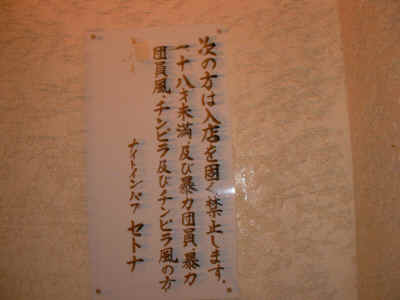 次の方は入店を固く禁止します。
一十八才未満、及び暴力団員、暴力
団員風・チンピラ及びチンピラ風の方
ナイトインパブ セトナ